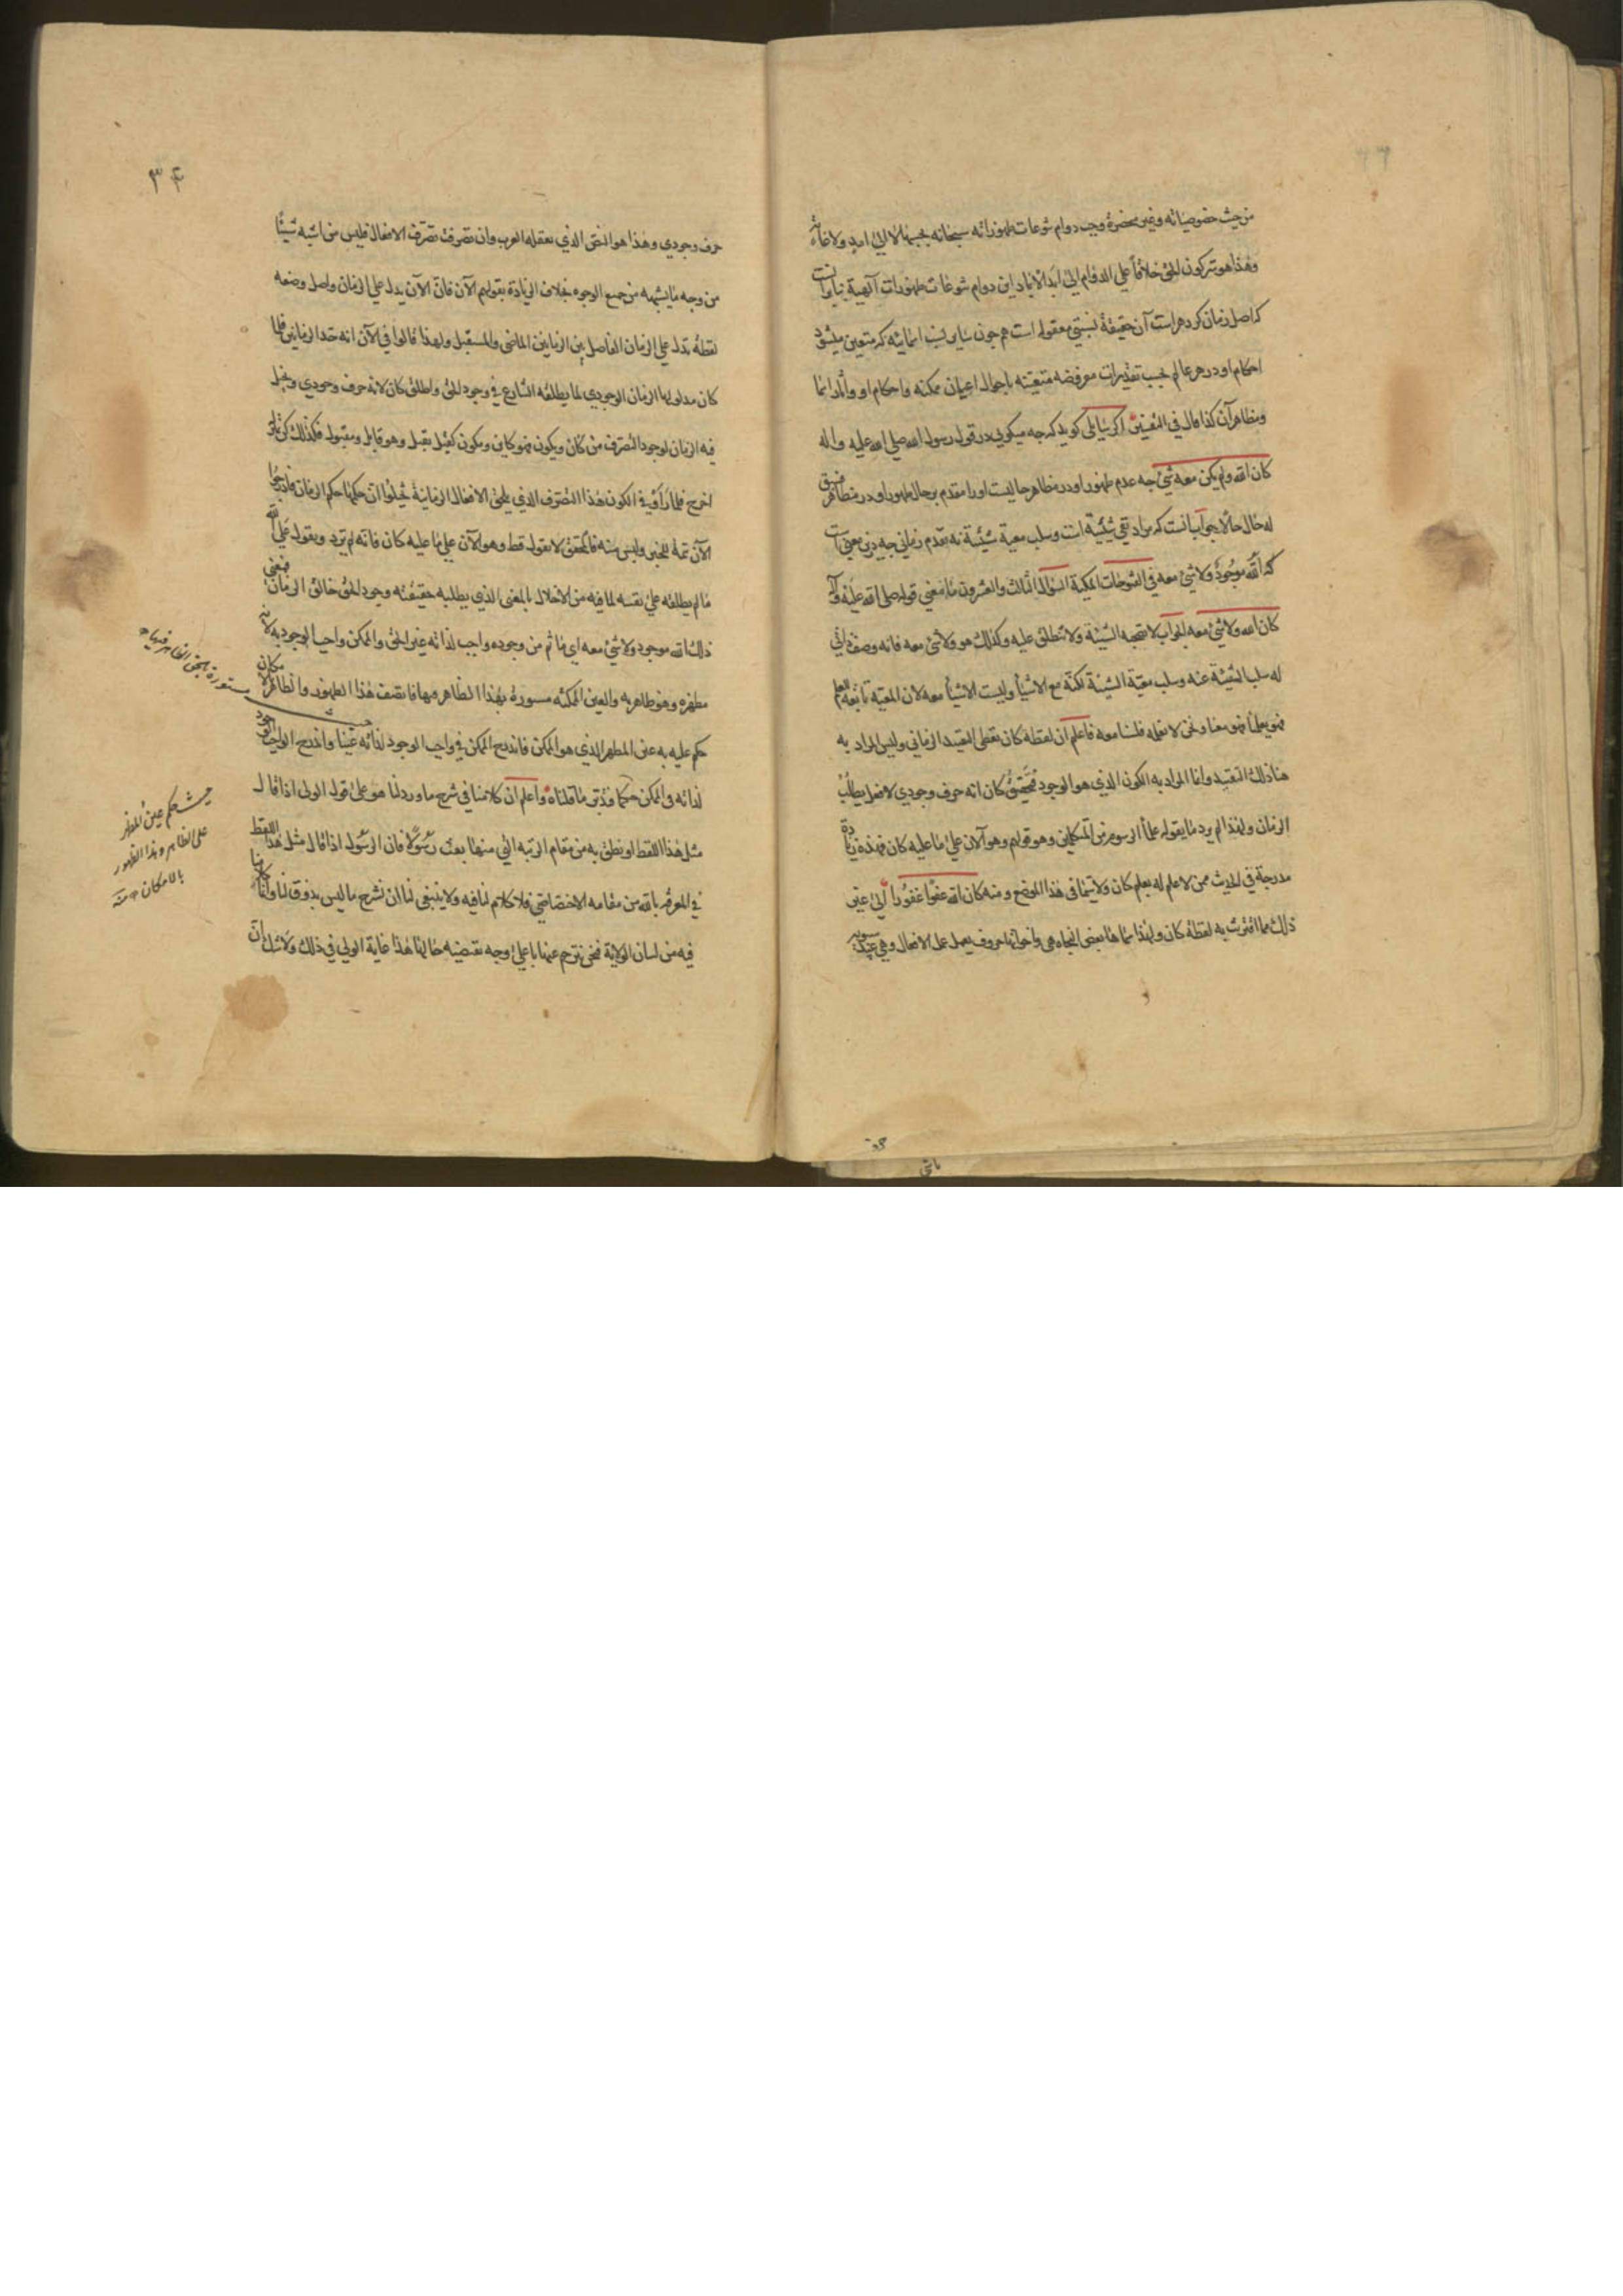 من حيث خصوصياته وغير منحصرة وجب دوام تنوعات ظهوراته سبحانه بحسبها لا الى امد ولا غاية
وهذا هو سر كون الحق خلاقاً علي الدوام الى ابد الآباد اين دوام تنوعات ظهورات آلهية بنا
كه اصل زمان كه دهر است آن حقيقة نسبتي معقوله است هم چون ساير نسب اسمائيه كه متعين ميشود
احكام او در هر عالم بحسب تقديرات مفروضه متعينه باحوال اعيان ممكنه واحكام او وآثار اسما
ومظاهر آن كذا قال في اگر سايلى گويد كه چه ميگويي در قول رسول الله صلى الله عليه واله
كان الله ولم يكن معه شئ چه عدم ظهور او در مظاهر حاليست او را مقدم بر حال ظهور او در مظاهر
له حال حالا جواب آنست كه مراد نفي شيئية است وسلب معية شيئية نه تقدم زماني چه درين معني است
كه الله موجود ولا شئ معه في الفتوحات المكية السؤال الثالث والعشرون ما معني قوله صلى الله عليه وآله
كان الله ولا شئ معه الجواب لا تصحبه الشيئية ولا تنطلق عليه وكذلك هو ولا شئ معه فانه وصف ذاتي
له سلب الشيئية عنه وسلب معية الشيئية لكنه مع الاشيأ وليست الاشيأ معه لان المعية تابعة للعلم
فهو يعلمنا فهو معنا ونحن لا نعلمه فلسنا معه فاعلم ان لفظة كان تعطى التقييد الزماني وليس المراد به
هنا ذلك التقييد وانما المراد به الكون الذي هو الوجود فتحقيق كان انه حرف وجودي لا فعل يطلب
الزمان ولهذا لم يرد ما يقوله علمأ الرسوم من المتكلمين وهو قولهم وهو الآن علي ما عليه كان فهذه زيادة
مدرجة في الحديث ممن لا علم له بعلم كان ولا سيما في هذا الموضع ومنه كان الله عفوا غفورا الي غير
ذلك مما اقترنت به لفظة كان ولهذا سماها بعض النحاه هي واخواتها حروف يعمل عمل الافعال وهي عند سيبويه
٣۴
حرف وجودي وهذا هو النص الذي تعقله العرب وان تصرفت تصرف الافعال فليس من اشبه شيئا
من وجه ما يشبهه من جميع الوجوه بخلاف الزيادة بقولهم الآن فان الآن يدل علي الزمان واصل وضعه
لفظة تدل علي الزمان الفاصل بين الزمانين الماضي والمستقبل ولهذا قالوا في الآن انه حد الزمانين فلما
كان مدلولها الزمان الوجودي لم يطلقه الشارع في وجود الحق واطلق كان لانه حرف وجودي وتخيل
فيه الزمان لوجود التصرف من كان ويكون فهو كاين ومكون كقتل يقتل وهو قاتل ومقتول فكذلك كن بمنزلة
اخرج فلما رأوا في الكون هذا التصرف الذي يلحق الافعال الزمانية تخيلوا ان حكمها حكم الزمان فادرجوا
الآن تتمة للخبر وليس منه فالمحقق لا يقول قط وهو الآن علي ما عليه كان فانه لم يرد ويقول علي الله
ما لم يطلقه علي نفسه لما فيه من الاخلال بالمعنى الذي يطلبه حقيقته وجود الحق خالق الزمان فمعنى
ذلك الله موجود ولا شئ معه اي ما ثم من وجوده واجب لذاته غير الحق والممكن واجب الوجود به لانه
مظهره وهو ظاهر به والعين الممكنه مستورة بهذا الظاهر فيها فاتصف هذا الظهور والظاهر بالامكان
حكم عليه به عين المظهر الذي هو الممكن فاندرج الممكن في واجب الوجود لذاته عينا واندرج الواجب الوجود
لذاته في الممكن حكما فتدبر ما قلناه واعلم ان كلامنا في شرح ما ورد انما هو على قول الولى اذا قال
مثل هذا اللفظ او نطق به من مقام الرتبه التي منها بعث رسولا فان الرسول اذا قال مثل هذا اللفظ
في المعرفه بالله من مقامه الاختصاصي فلا كلام لنا فيه ولا ينبغى لنا ان نشرح ما ليس بذوق لنا وانما كلامنا
فيه من لسان الولاية فنحن نترجم عنها باعلي وجه تقتضيه حالها هذا غاية الولي في ذلك ولا شك ان
مستورة بهذا الظاهر فيها
حيث حكم عين المظهر
على الظاهر وهذا الظهور
بالامكان